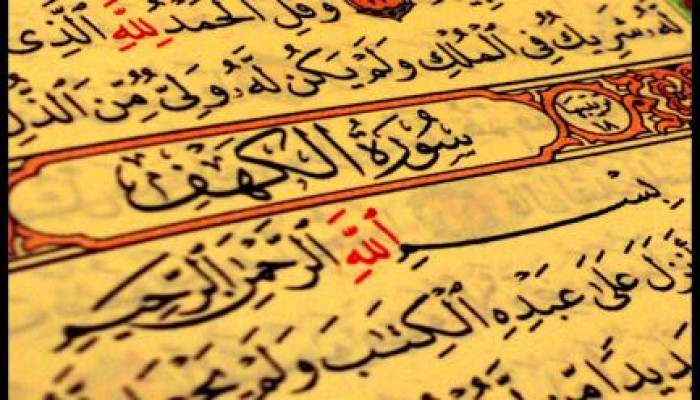 وَقُلِ ٱلْحَمْدُ لِلَّهِ ٱلَّذِى
لَّهُۥ شَرِيكٌ فِى ٱلْمُلْكِ وَلَمْ يَكُن لَّهُۥ وَلِىٌّ مِّنَ ٱلذُّلِّ
سُورَةُ الكَهْفِ
١٨
بِسْمِ ٱللَّهِ ٱلرَّحْمَٰنِ ٱلرَّحِيمِ
أَنزَلَ عَلَىٰ عَبْدِهِ ٱلْكِتَٰبَ وَلَمْ يَجْعَل